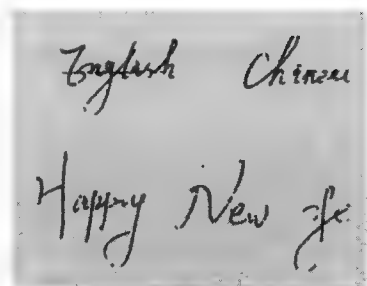 English Chinese
Happy New